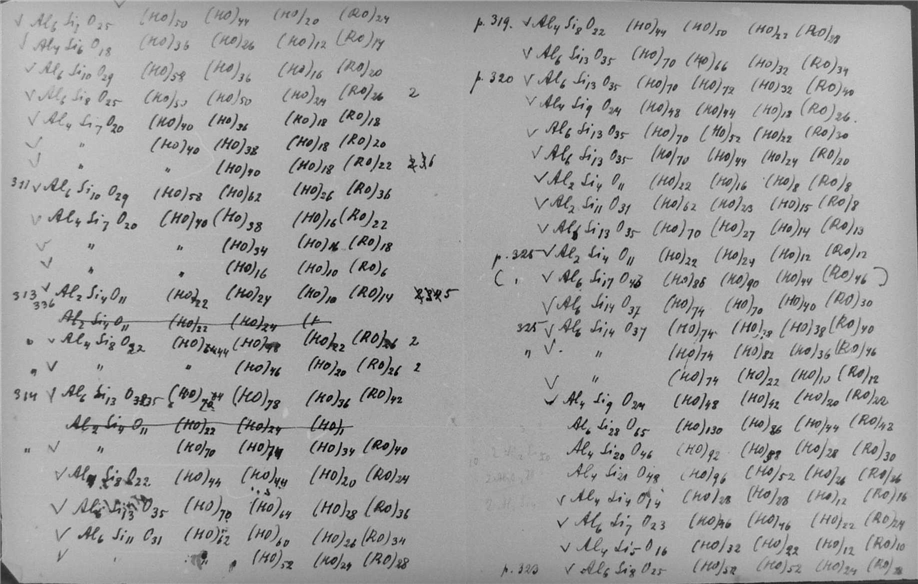 √ Al6 Si8 O25 (HO)50 (HO)44 (HO)20 (RO)24
√ Al4 Si6 O18 (HO)36 (HO)26 (HO)12 (RO)14
√ Al6 Si10 O29 (HO)58 (HO)36 (HO)16 (RO)20
√ Al6 Si8 O25 (HO)50 (HO)50 (HO)24 (RO)26 2
√ Al4 Si7 O20 (HO)40 (HO)36 (HO)18 (RO)18
√ " (HO)40 (HO)38 (HO)18 (RO)20
√ " " (HO)40 (HO)18 (RO)22
√ Al6 Si10 O29 (HO)58 (HO)62 (HO)26 (RO)36
√ Al4 Si7 O20 (HO)40 (HO)38 (HO)16 (RO)22
√ " " (HO)34 (HO)16 (RO)18
√ " " (HO)16 (HO)10 (RO)6
313 √ Al2 Si4 O11 (HO)22 (HO)24 (HO)10 (RO)14
336
Al2 Si4 O11 (HO)22 (HO)24 (H
" √ Al4 Si8 O22 (HO)44 (HO)48 (HO)22 (RO)26 2
" √ " " (HO)46 (HO)20 (RO)26 2
314 √ Al6 Si13 O35 (HO)70 (HO)78 (HO)36 (RO)42
Al2 Si4 O11 (HO)22 (HO)24 (HO)
" √ " (HO)70 (HO)74 (HO)34 (RO)40
√ Al4 Si8 O22 (HO)44 (HO)44 (HO)20 (RO)24
√ Al6 Si13 O35 (HO)70 (HO)64 (HO)28 (RO)36
√ Al6 Si11 O31 (HO)62 (HO)60 (HO)26 (RO)34
√ " " (HO)52 (HO)24 (RO)28
p. 319. √ Al4 Si8 O22 (HO)44 (HO)50 (HO)22 (RO)28
√ Al6 Si13 O35 (HO)70 (HO)66 (HO)32 (RO)34
p. 320 √ Al6 Si13 O35 (HO)70 (HO)72 (HO)32 (RO)40
√ Al4 Si9 O24 (HO)48 (HO)44 (HO)18 (RO)26.
√ Al6 Si13 O35 (HO)70 (HO)52 (HO)22 (RO)30
√ Al6 Si13 O35 (HO)70 (HO)44 (HO)24 (RO)20
√ Al2 Si4 O11 (HO)22 (HO)16 (HO)8 (RO)8
√ Al2 Si11 O31 (HO)62 (HO)23 (HO)15 (RO)8
√ Al6 Si13 O35 (HO)70 (HO)27 (HO)14 (RO)13
p. 325 √ Al2 Si4 O11 (HO)22 (HO)24 (HO)12 (RO)12
( √ Al6 Si17 O43 (HO)86 (HO)90 (HO)44 (RO)46 )
√ Al6 Si14 O37 (HO)74 (HO)70 (HO)40 (RO)30
325 √ Al6 Si14 O37 (HO)74 (HO)78 (HO)38 (RO)40
" √ " (HO)74 (HO)82 (HO)36 (RO)46
√ " (HO)74 (HO)22 (HO)10 (RO)12
√ Al4 Si9 O24 (HO)48 (HO)42 (HO)20 (RO)22
Al6 Si28 O65 (HO)130 (HO)86 (HO)44 (RO)42
Al4 Si20 O46 (HO)92 (HO) (HO)28 (RO)30
Al4 Si21 O48 (HO)96 (HO)52 (HO)26 (RO)26
√ Al4 Si4 O14 (HO)28 (HO)28 (HO)12 (RO)16
√ Al6 Si7 O23 (HO)46 (HO)46 (HO)22 (RO)24
√ Al4 Si5 O16 (HO)32 (HO)22 (HO)12 (RO)10
p. 323 √ Al6 Si8 O25 (HO)52 (HO)52 (HO)24 (RO)